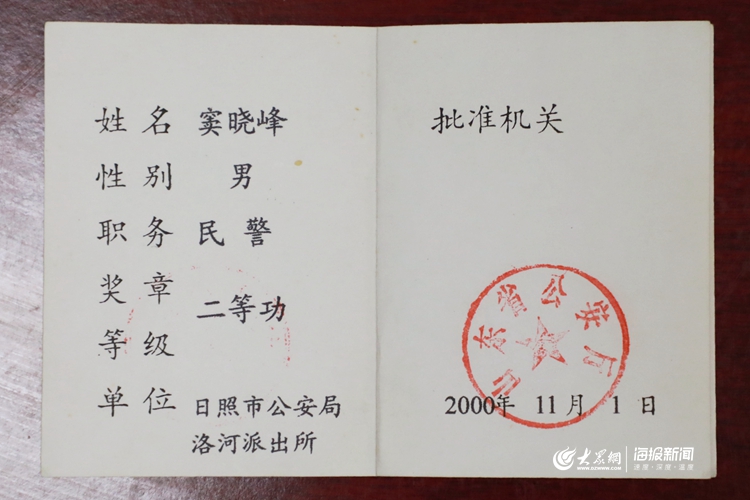 姓名 窦晓峰
性别 男
职务 民警
奖章
等级 二等功
单位 日照市公安局
洛河派出所
批准机关
山东省公安厅
2000年 11月 1日
大众网
WWW.DZWWW.COM
海报新闻
速度·深度·温度